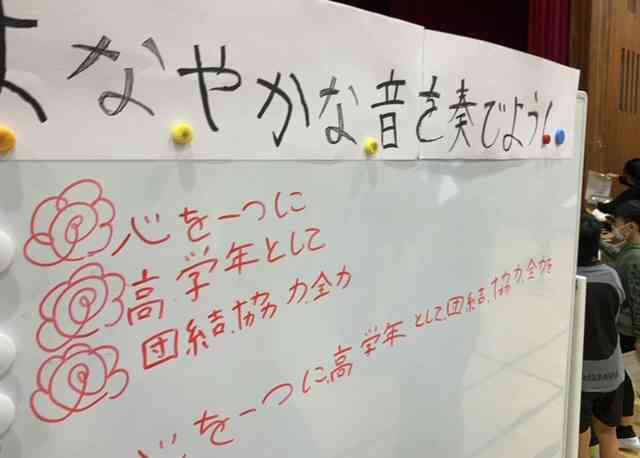 なやかな音を奏でよう！
心を一つに
高学年として
団結、協力、全力
心を一つに、高学年として、団結、協力、全力を